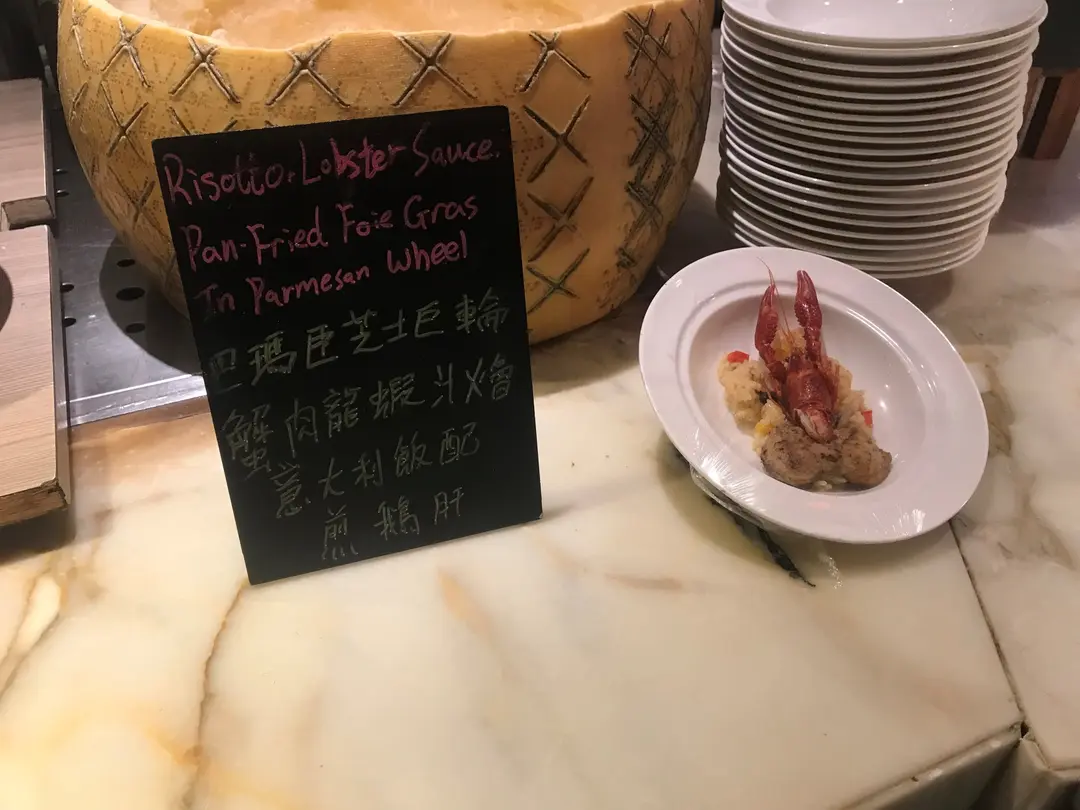 Risotto, Lobster Sauce,
Pan-Fried Foie Gras
In Parmesan Wheel
巴瑪臣芝士巨輪
蟹肉龍蝦汁燴
意大利飯配
煎鵝肝